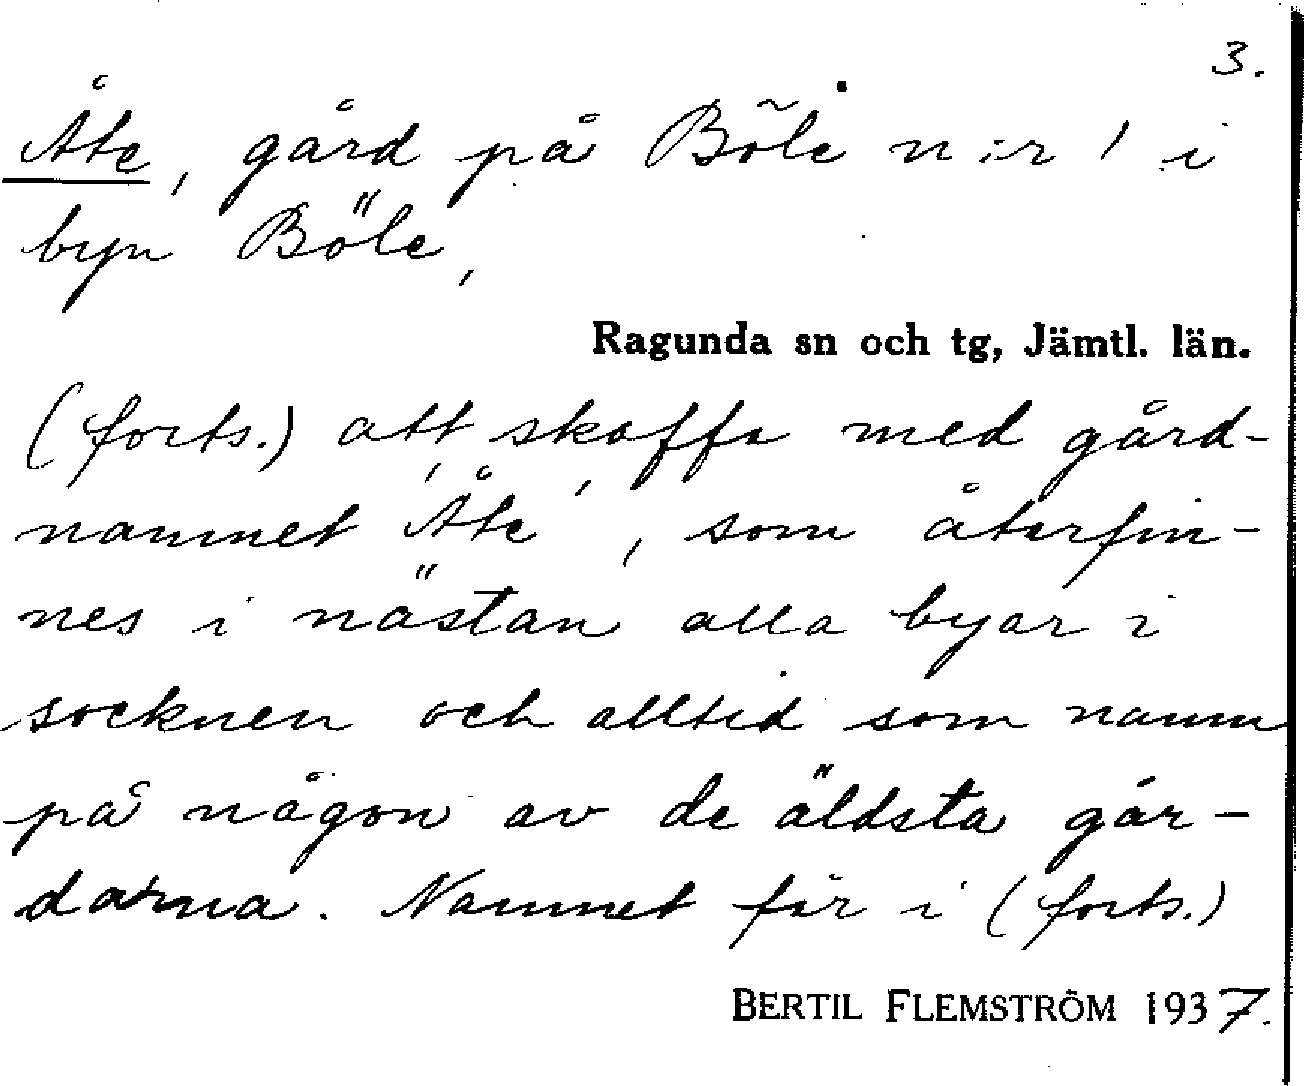 3.
Åte, gård på Böle n:r 1 i
byn Böle,
Ragunda sn och tg, Jämtl. län.
(forts.) att skaffa med gård-
namnet 'Åte', som återfin-
nes i nästan alla byar i
socknen och alltid som namn
på någon av de äldsta går-
darna. Namnet får i (forts.)
BERTIL FLEMSTRÖM 1937.